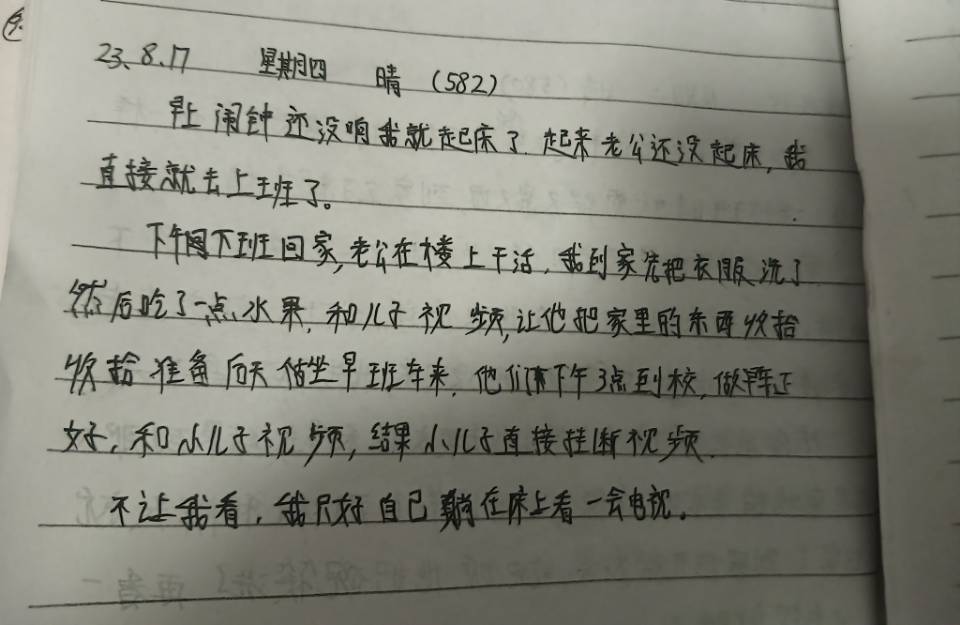 23.8.17 星期四 晴 (582)
早上闹钟还没响我就起床了.起来老公还没起床,我
直接就去上班了。
下午下班回家,老公在楼上干活,我到家先把衣服洗了
然后吃了一点水果,和儿子视频,让他把家里的东西收拾
收拾准备后天坐早班车来,他们下午3点到校,做车正
好,和小儿子视频,结果小儿子直接挂断视频.
不让我看,我只好自己躺在床上看一会电视。